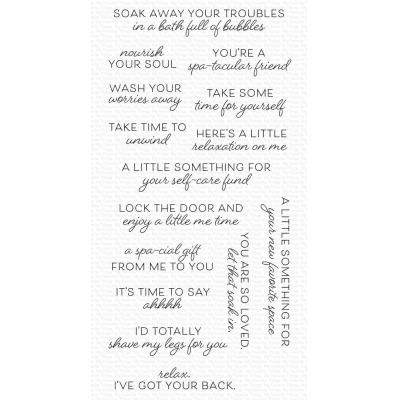 SOAK AWAY YOUR TROUBLES
in a bath full of bubbles
nourish
YOUR SOUL
YOU'RE A
spa-tacular friend
WASH YOUR
worries away
TAKE SOME
time for yourself
TAKE TIME TO
unwind
HERE'S A LITTLE
relaxation on me
A LITTLE SOMETHING FOR
your self-care fund
LOCK THE DOOR AND
enjoy a little me time
a spa-cial gift
FROM ME TO YOU
IT'S TIME TO SAY
ahhhh
I'D TOTALLY
shave my legs for you
relax.
I'VE GOT YOUR BACK.
YOU ARE SO LOVED.
let that soak in.
A LITTLE SOMETHING FOR
your new favorite space